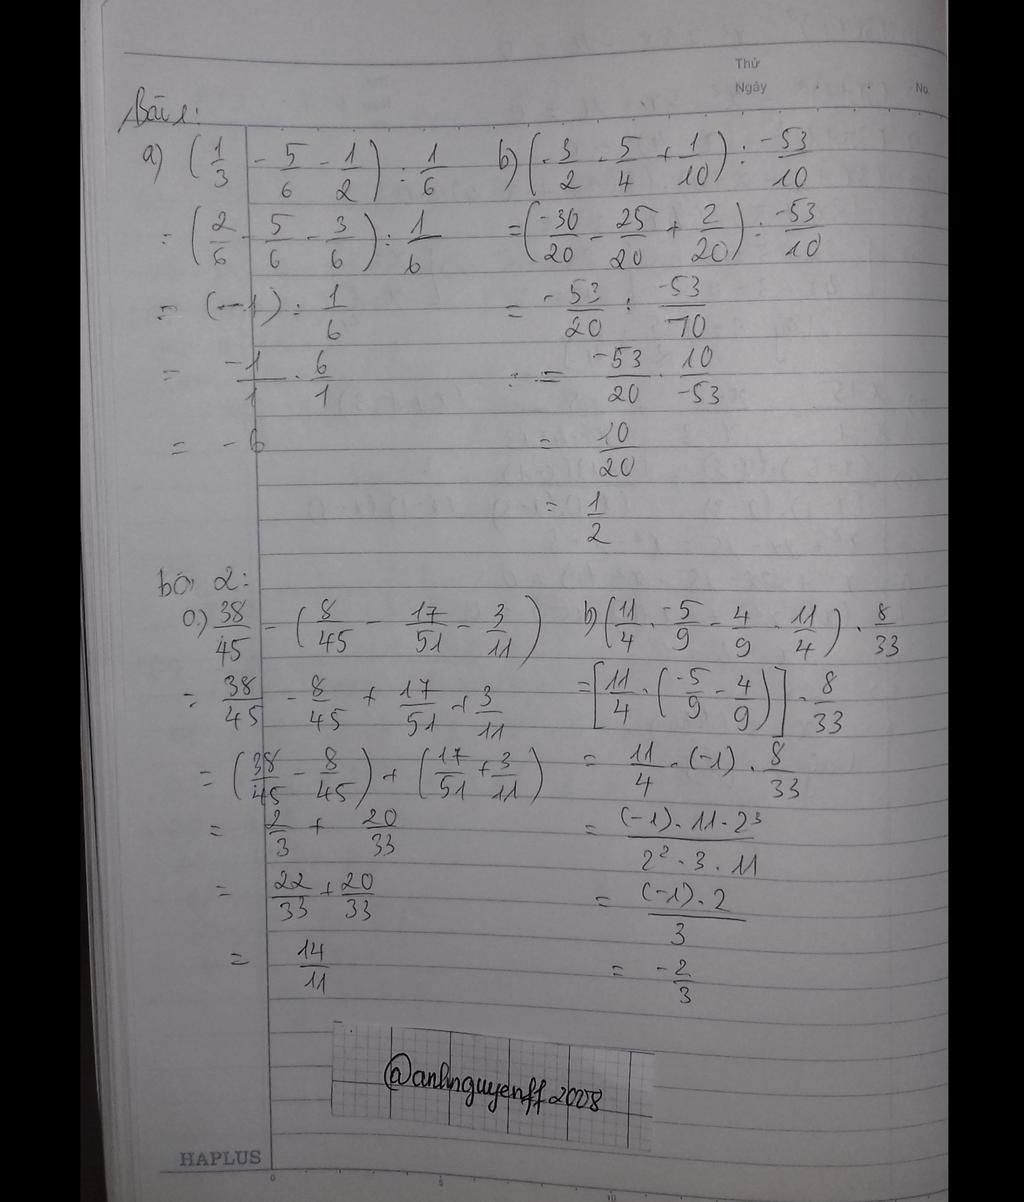 Thứ
Ngày
No.
Bài 1:
a) (1/3 - 5/6 - 1/2) : 1/6
= (2/6 - 5/6 - 3/6) : 1/6
= (-1) : 1/6
= -1/1 . 6/1
= -6
b) (-3/2 - 5/4 + 1/10) : -53/10
= (-30/20 - 25/20 + 2/20) : -53/10
= -53/20 : -53/10
= -53/20 . 10/-53
= 10/20
= 1/2
bài 2:
a) 38/45 - (8/45 - 17/51 - 3/11)
= 38/45 - 8/45 + 17/51 + 3/11
= (38/45 - 8/45) + (17/51 + 3/11)
= 2/3 + 20/33
= 22/33 + 20/33
= 14/11
b) (11/4 . -5/9 - 4/9 . 11/4) . 8/33
= [11/4 . (-5/9 - 4/9)] . 8/33
= 11/4 . (-1) . 8/33
= (-1) . 11 . 2³ / 2² . 3 . 11
= (-1) . 2 / 3
= -2/3
@anhnguyenff2008
HAPLUS
0 5 10